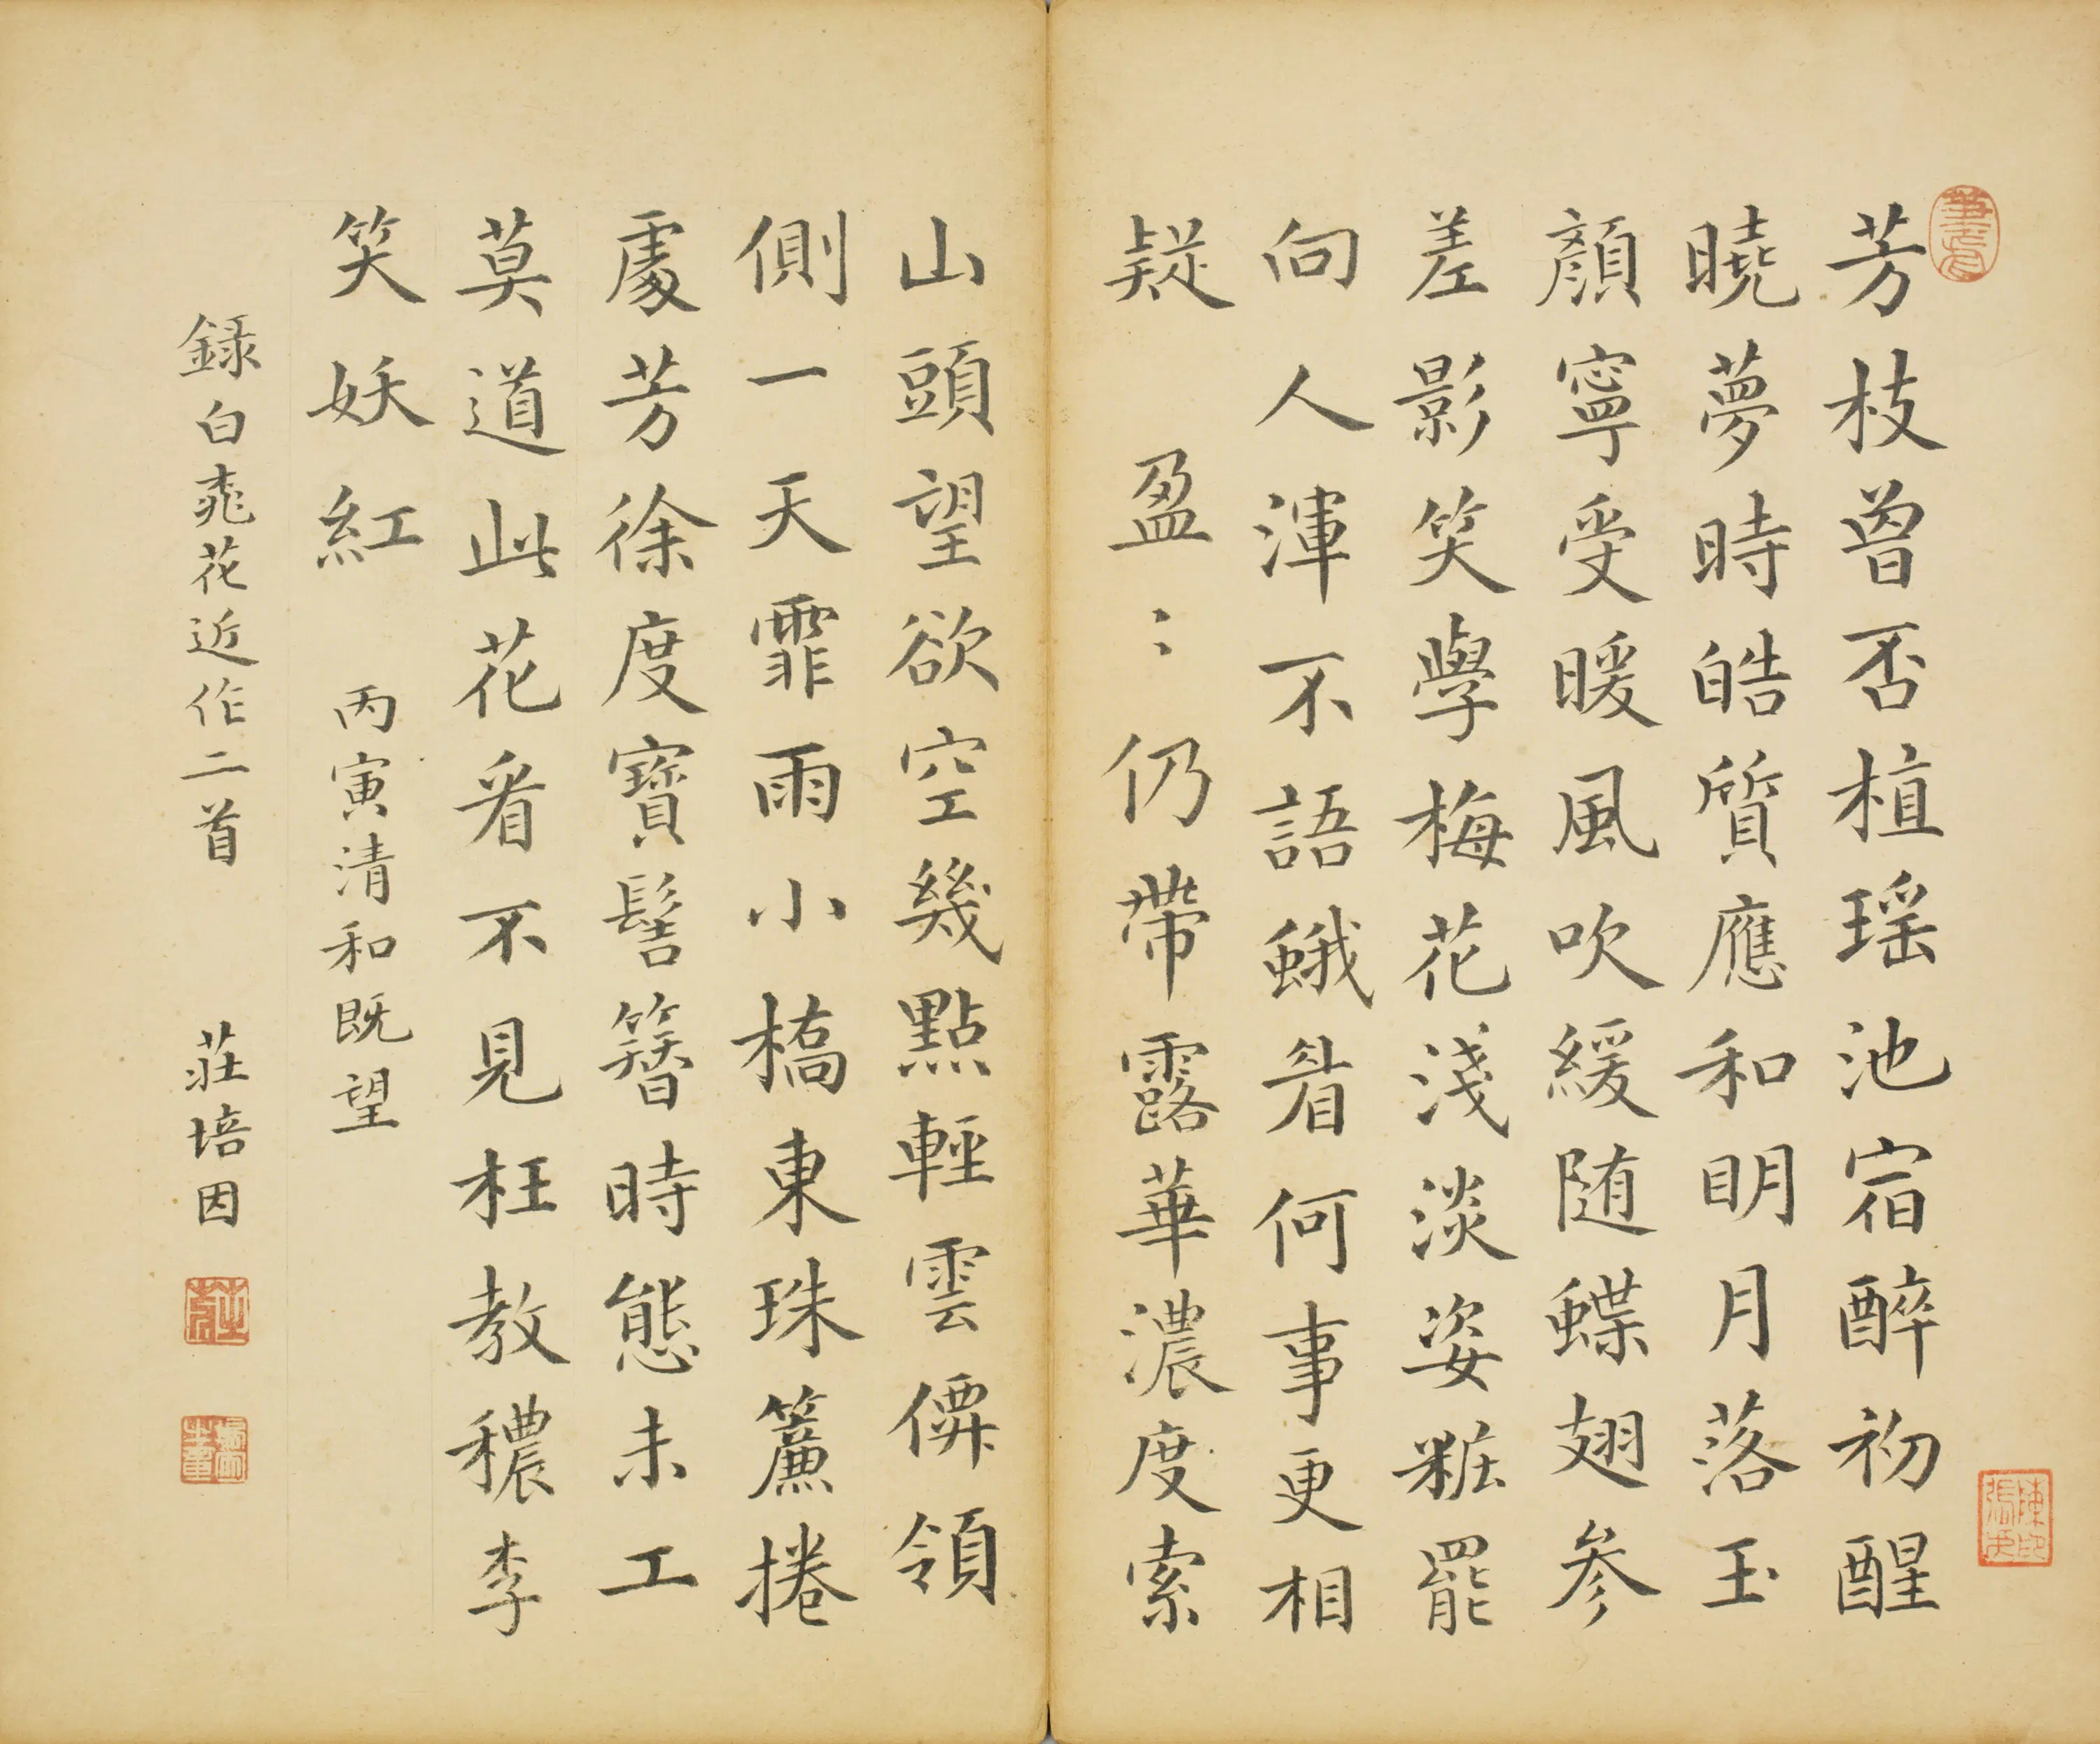 芳枝曾否植瑶池宿醉初醒
曉夢時皓質應和明月落玉
顏寧受暖風吹緩随蝶翅參
差影笑學梅花淺淡姿粧罷
向人渾不語蛾眉何事更相
疑　盈〻仍帶露華濃度索
山頭望欲空幾點輕雲僛領
側一天霏雨小橋東珠簾捲
處芳徐度寶髻簪時態未工
莫道此花看不見枉教穠李
笑妖紅　丙寅清和既望
録白桃花近作二首　莊培因